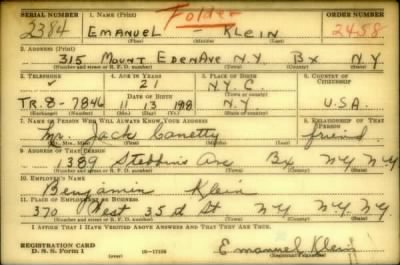 SERIAL NUMBER 1. NAME (Print) ORDER NUMBER
Folder
2384 EMANUEL - KLEIN 2458
(First) (Middle) (Last)
2. ADDRESS (Print)
315 MOUNT EDEN AVE N.Y. BX N Y
(Number and street or R. F. D. number) (Town) (County) (State)
3. TELEPHONE 4. AGE IN YEARS 5. PLACE OF BIRTH 6. COUNTRY OF CITIZENSHIP
21 N.Y.C.
DATE OF BIRTH
TR.8-7846 11 13 N.Y U.S.A.
(Exchange) (Number) (Mo.) (Day) (Yr.) (State or country)
7. NAME OF PERSON WHO WILL ALWAYS KNOW YOUR ADDRESS 8. RELATIONSHIP OF THAT PERSON
Mr. Jack Canetty friend
(Mr., Mrs., Miss) (First) (Middle) (Last)
9. ADDRESS OF THAT PERSON
1389 Stebbins Ave Bx NY NY
(Number and street or R. F. D. number) (Town) (County) (State)
10. EMPLOYER'S NAME
Benjamin Klein
11. PLACE OF EMPLOYMENT OR BUSINESS
370 West 35 d St NY NY. NY
(Number and street or R. F. D. number) (Town) (County) (State)
I AFFIRM THAT I HAVE VERIFIED ABOVE ANSWERS AND THAT THEY ARE TRUE.
REGISTRATION CARD
D. S. S. Form 1 Emanuel Klein
(Registrant's signature)